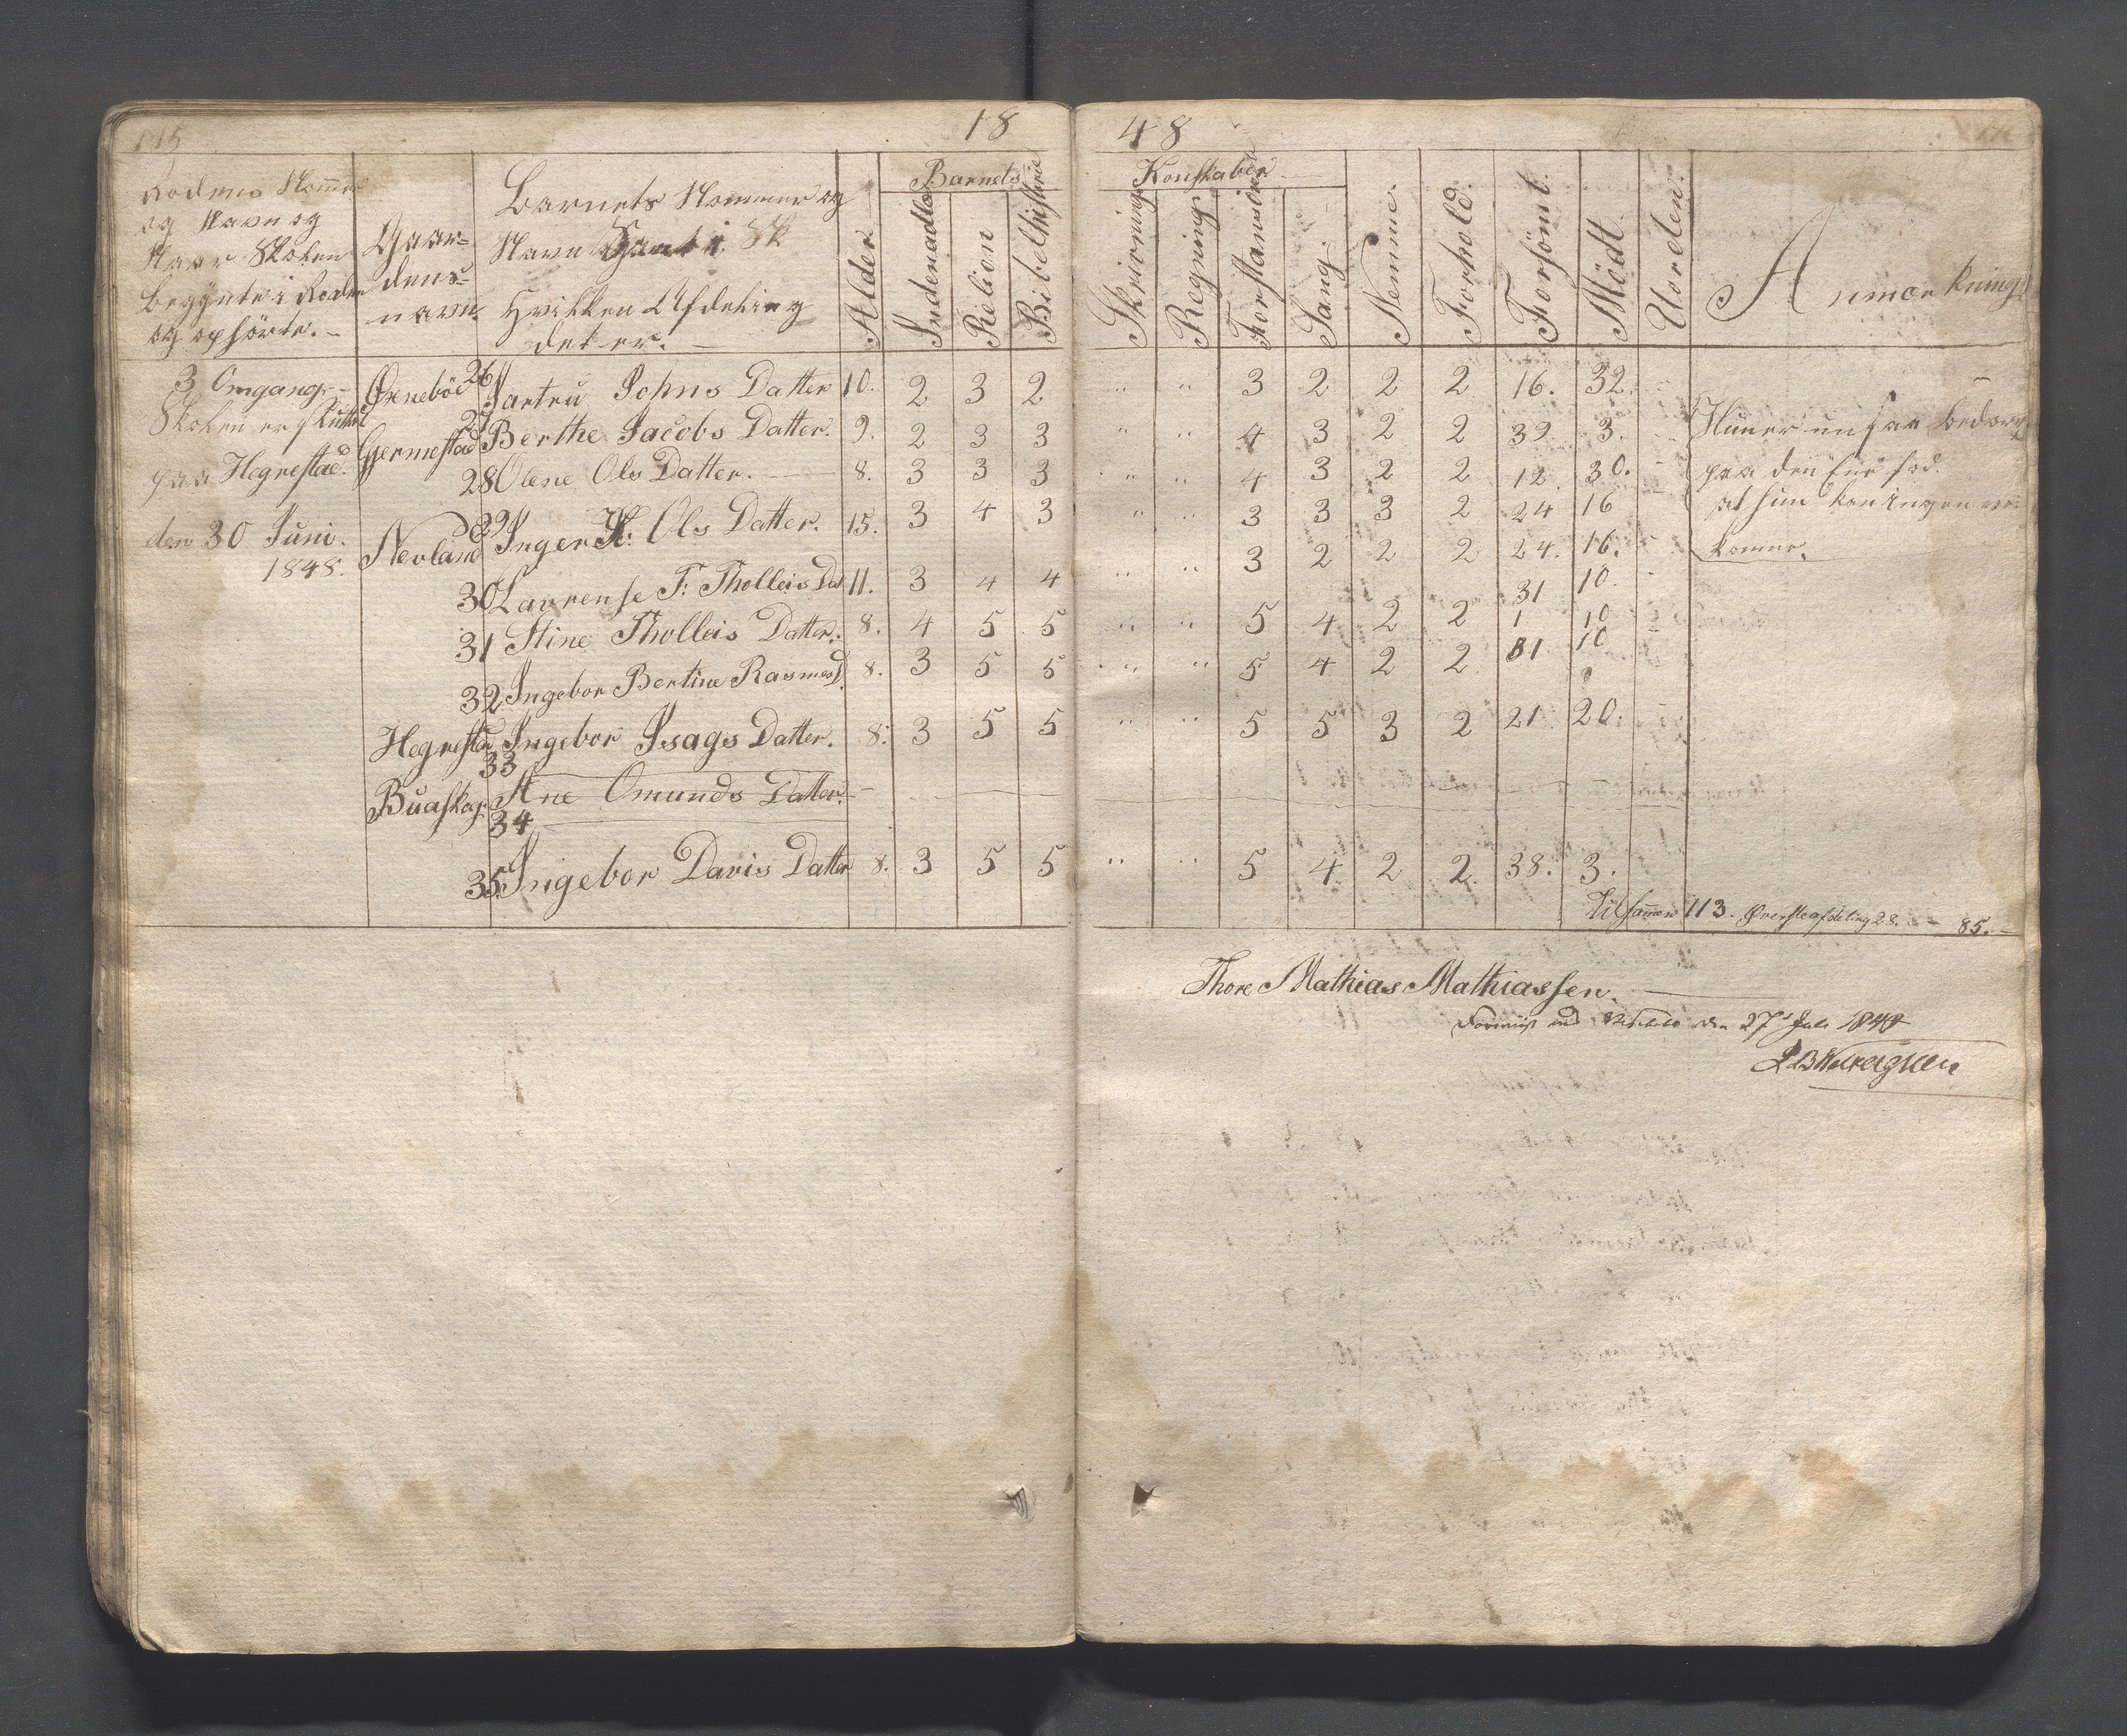 115
18 48
Barnets Kundskaber
Rodens Nommer
og Navn og
Naar Skolen
begynte i Roden
og ophörte.
Gaar=
dens=
navn.
Barnets Nommer og
Navn Samt i
hvilken Afdeling
det er.
Alder
Indenadlæ
Relion
Bibelhistorie
Skrivning
Regning
Forstand
Sang.
Nemme.
Forhold.
Forsömt.
Mödt.
Uorden.
Anmærkning
3 Omgang Øxneböe 26 Jartru Johns Datter 10. 2 3 2 " " 3 2 2 2 16. 32.
Skolen er sluttet Gjermestad 27 Berthe Jacobs Datter. 9. 2 3 3 " " 4 3 2 2 39 3. Huner
paa Hegrestad. 28 Olene Ols Datter. 8. 3 3 3 " " 4 3 2 2 12. 30. paa den Ene fod.
den 30 Juni. Nevland 29 Inger K: Ols Datter. 15. 3 4 3 " " 3 3 3 2 24 16 at hun kan ingen
1848. 3 2 2 2 24. 16. komme.
30 Laurense F: Tholleis Dat 11. 3 4 4 " " 31 10.
31 Stine Tholleis Datter. 8. 4 5 5 " " 5 4 2 2 1 10
32 Ingebor Bertine Rasmus D. 8. 3 5 5 " " 5 4 2 2. 31 10
Hegrestad 33 Ingebor Isags Datter. 8. 3 5 5 " " 5 5 3 2 21 20.
Buaskog. 34 Ane Omunds Datter.
35 Ingebor Davis Datter 8. 3 5 5 " " 5 4. 2 2. 38. 3.
Tilsamen 113. Øversteafdeling 28. - 85.
Thore Mathias Mathiassen.
den 27 Juli 1848